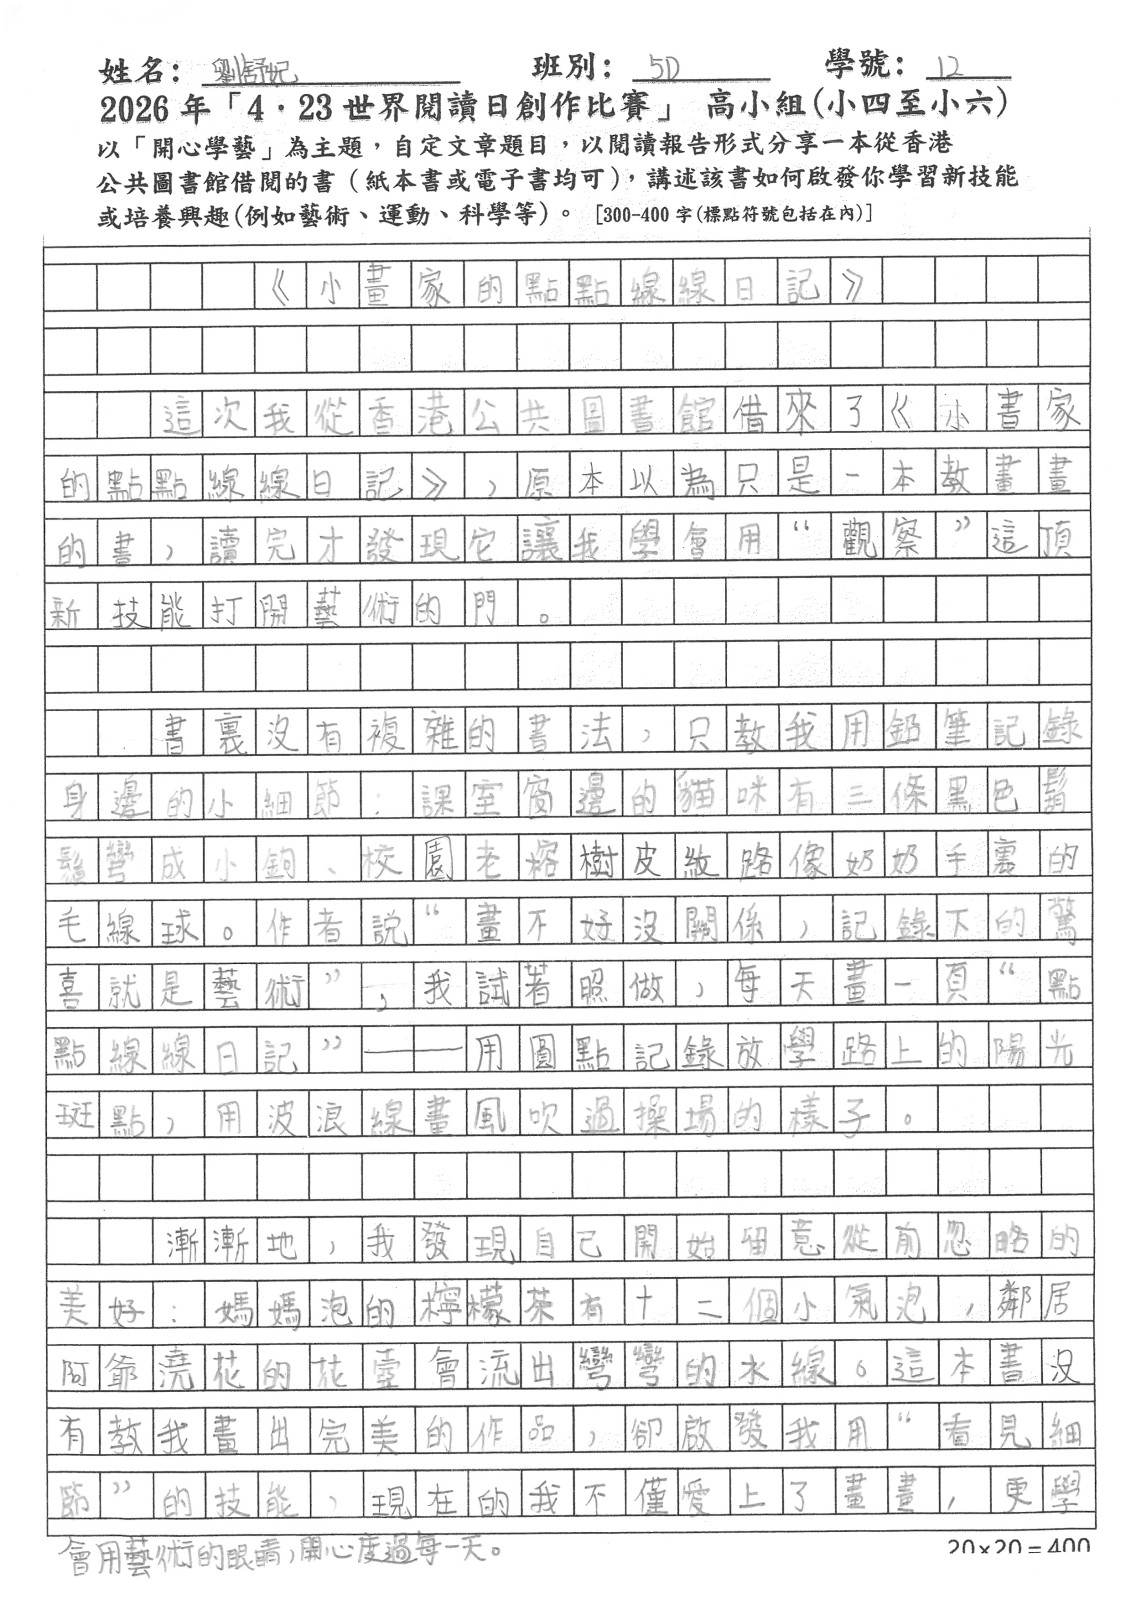 姓名：劉舒妃 班別：5D 學號：12
2026 年「4．23 世界閱讀日創作比賽」 高小組(小四至小六)
以「開心學藝」為主題，自定文章題目，以閱讀報告形式分享一本從香港
公共圖書館借閱的書（紙本書或電子書均可），講述該書如何啟發你學習新技能
或培養興趣(例如藝術、運動、科學等)。 [300-400 字(標點符號包括在內)]
《小畫家的點點線線日記》
這次我從香港公共圖書館借來了《小畫家
的點點線線日記》，原本以為只是一本教畫畫
的書，讀完才發現它讓我學會用“觀察”這項
新技能打開藝術的門。
書裏沒有複雜的畫法，只教我用鉛筆記錄
身邊的小細節：課室窗邊的貓咪有三條黑色鬍
鬚彎成小鉤、校園老榕樹皮紋路像奶奶手裏的
毛線球。作者說“畫不好沒關係，記錄下的驚
喜就是藝術”，我試著照做，每天畫一頁“點
點線線日記”——用圓點記錄放學路上的陽光
斑點，用波浪線畫風吹過操場的樣子。
漸漸地，我發現自己開始留意從前忽略的
美好：媽媽泡的檸檬茶有十二個小氣泡，鄰居
阿爺澆花的花壼會流出彎彎的水線。這本書沒
有教我畫出完美的作品，卻啟發我用“看見細
節”的技能，現在的我不僅愛上了畫畫，更學
會用藝術的眼睛，開心度過每一天。
20×20＝400